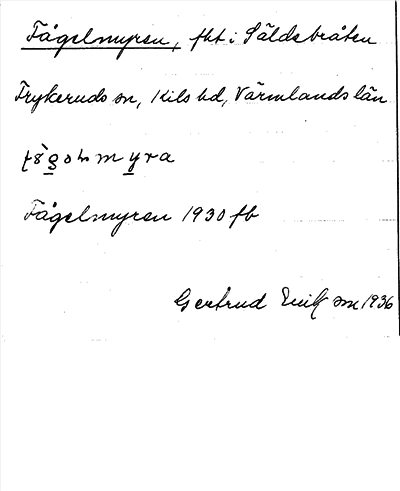 Fågelmyren, fht i Säldebråten
Frykeruds sn, Kils hd, Värmlands län
Fågelmyren 1930 fb
Gertrud 1936